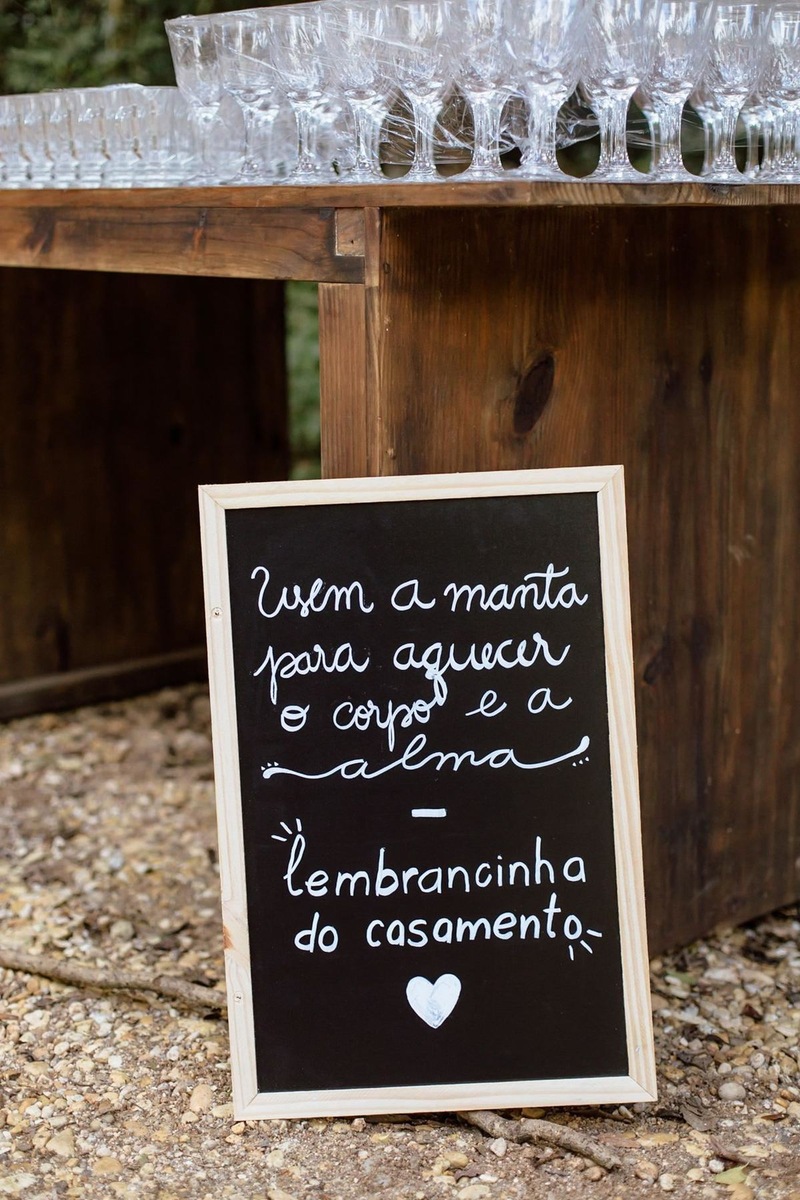 Usem a manta
para aquecer
o corpo e a
alma
lembrancinha
do casamento